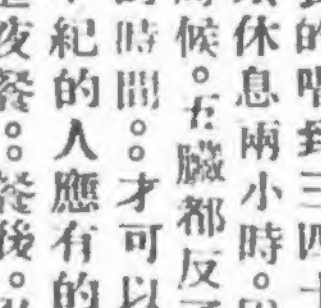 的唱到三四十
休息兩小時。
候。五臟都反
時間。。才可以
紀的人應有的
夜餐。。餐後。